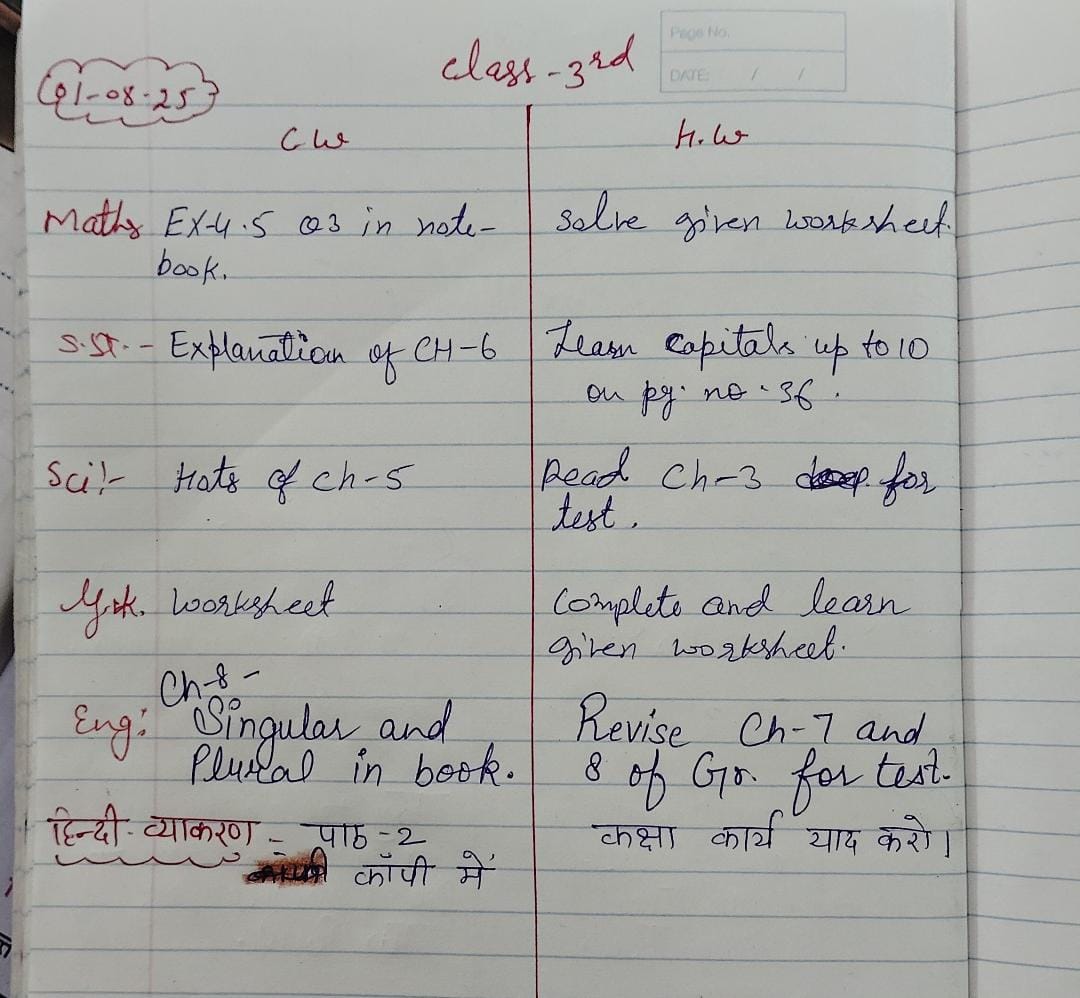 Class - 3rd
Page No.
DATE: / /
01-08-25
C.W
H.W
Maths Ex-4.5 Q3 in note-
book.
Solve given worksheet.
S.ST. - Explanation of CH-6
Learn capitals up to 10
on pg. no. 36.
Sci:- Hots of ch-5
Read Ch-3 for
test.
G.K. Worksheet
Complete and learn
given worksheet.
Ch-8 -
Eng: Singular and
Plural in book.
Revise Ch-7 and
8 of Gr. for test.
हिन्दी व्याकरण - पाठ -2
कॉपी में
कक्षा कार्य याद करो।